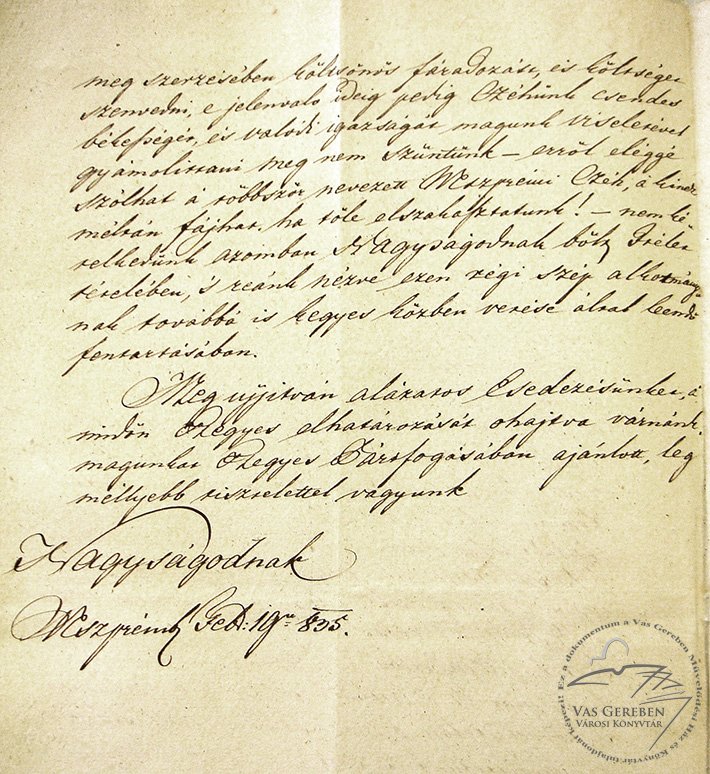 meg szerzésében költsönös fáradozást, és költséget
szenvedni, e jelenvaló ideig pedig Czéhünk csendes
békességét, és valódi igazságát magunk viseletével
gyámolittani meg nem szüntünk – erről eléggé
szólhat á többször nevezett Weszprémi Czéh, a kinek
méltán fájhat, ha tőle elszakasztatunk! – nem ké
telkedünk azomban Nagyságodnak bölts Itéle
tételében, 's reánk nézve ezen régi szép alkotmány-
nak továbbá is kegyes közben vetése által leendő
fentartásában.
Meg ujjitván alázatos Esedezésünket, á
midőn Kegyes elhatározását ohajtva várnánk,
magunkat Kegyes Pártfogásában ajánlott, leg
méllyebb tisztelettel vagyunk
Nagyságodnak
Weszprémb 19n 835.
Ez a dokumentum a Vas Gereben Művelődési Ház és Könyvtár tulajdonát képezi!
VAS GEREBEN
VÁROSI KÖNYVTÁR